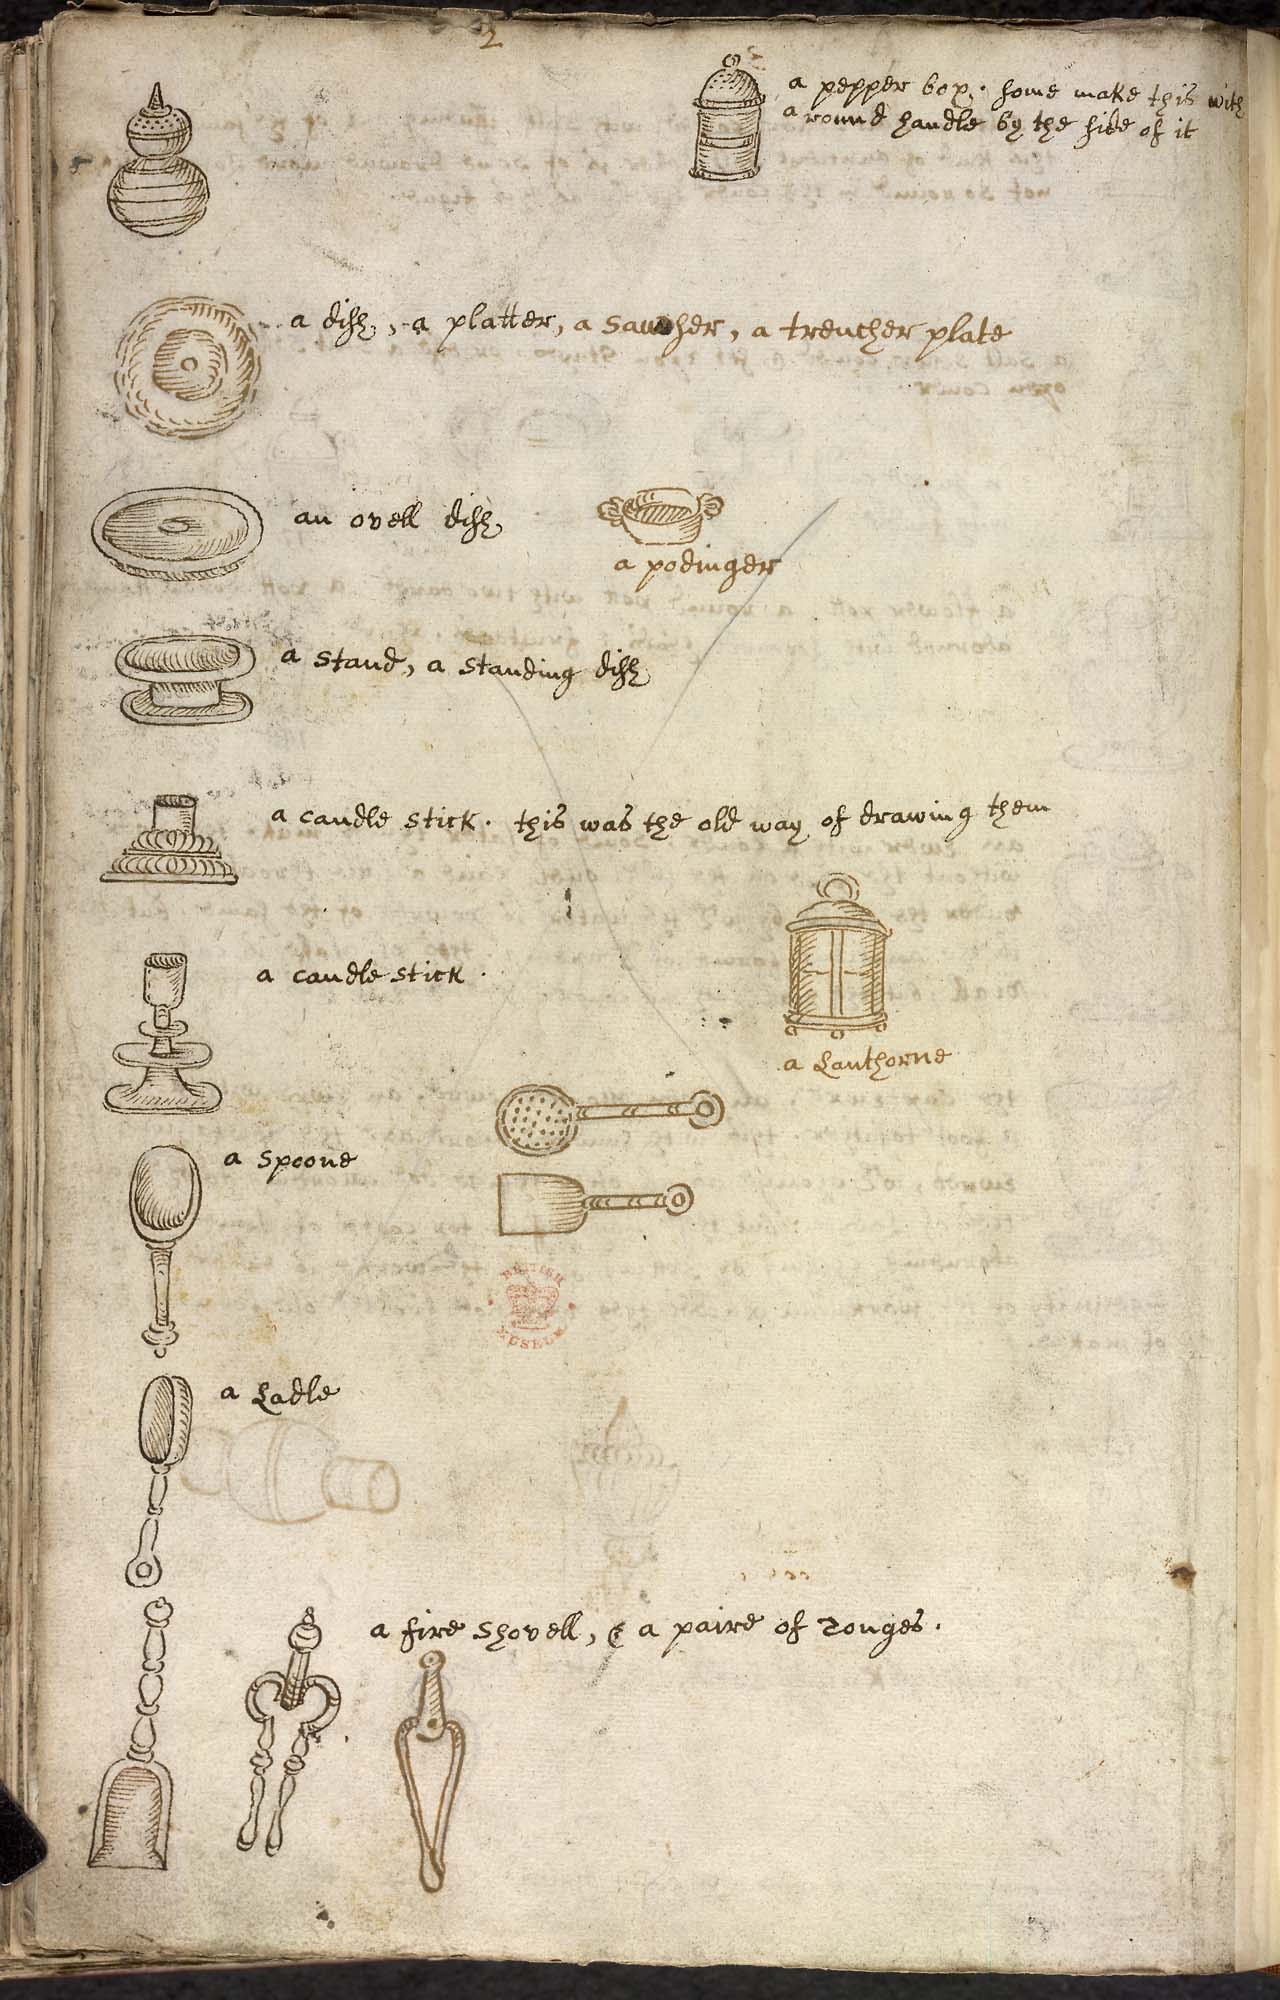 2
a pepper box. some make this with
a round handle by the side of it
a dish, a platter, a sawsher, a trencher plate
an ovell dish
a podinger
a stand, a standing dish
a candle stick. this was the old way of drawing them
a candle stick.
a Lanthorne
a spoone
BRITISH MUSEUM
a Ladle
a fire shovell, & a paire of Tonges.